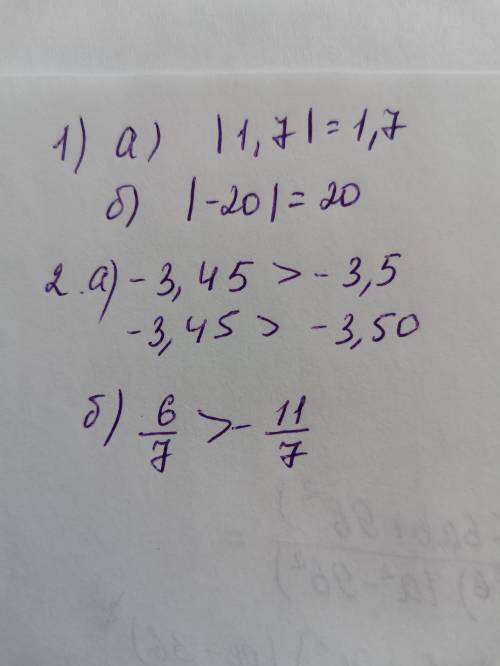 1) а) |1,7| = 1,7
б) |-20| = 20
2.а) -3,45 > -3,5
-3,45 > -3,50
б) 6/7 > - 11/7